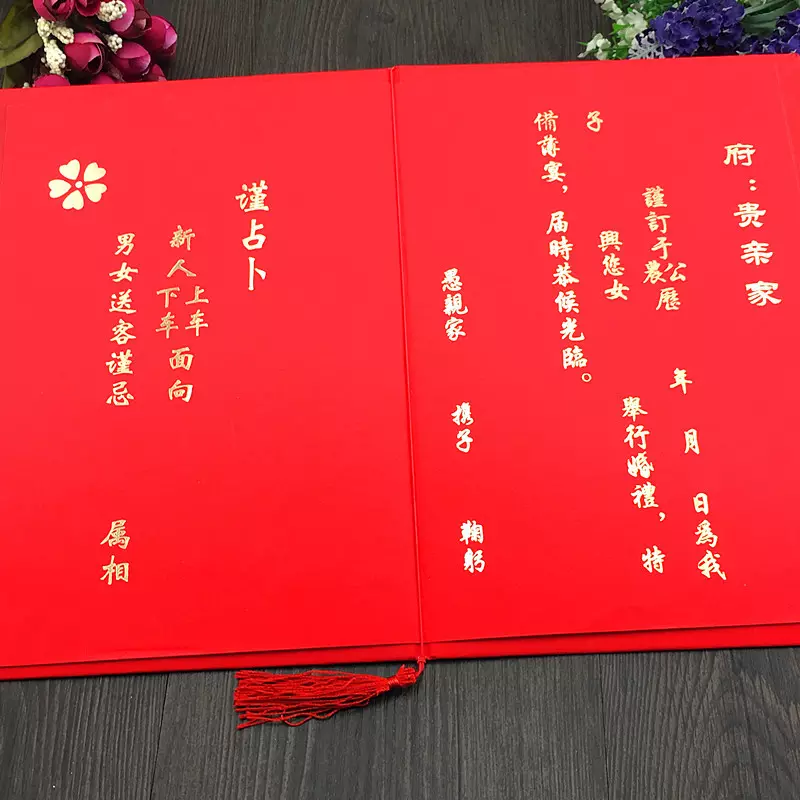 府：贵亲家
謹訂于公農歷 年 月 日爲我
子 與您女 舉行婚禮，特
備薄宴，届時恭候光臨。
愚親家 携子 鞠躬
谨占卜
新人上车下车面向
男女送客谨忌 属相